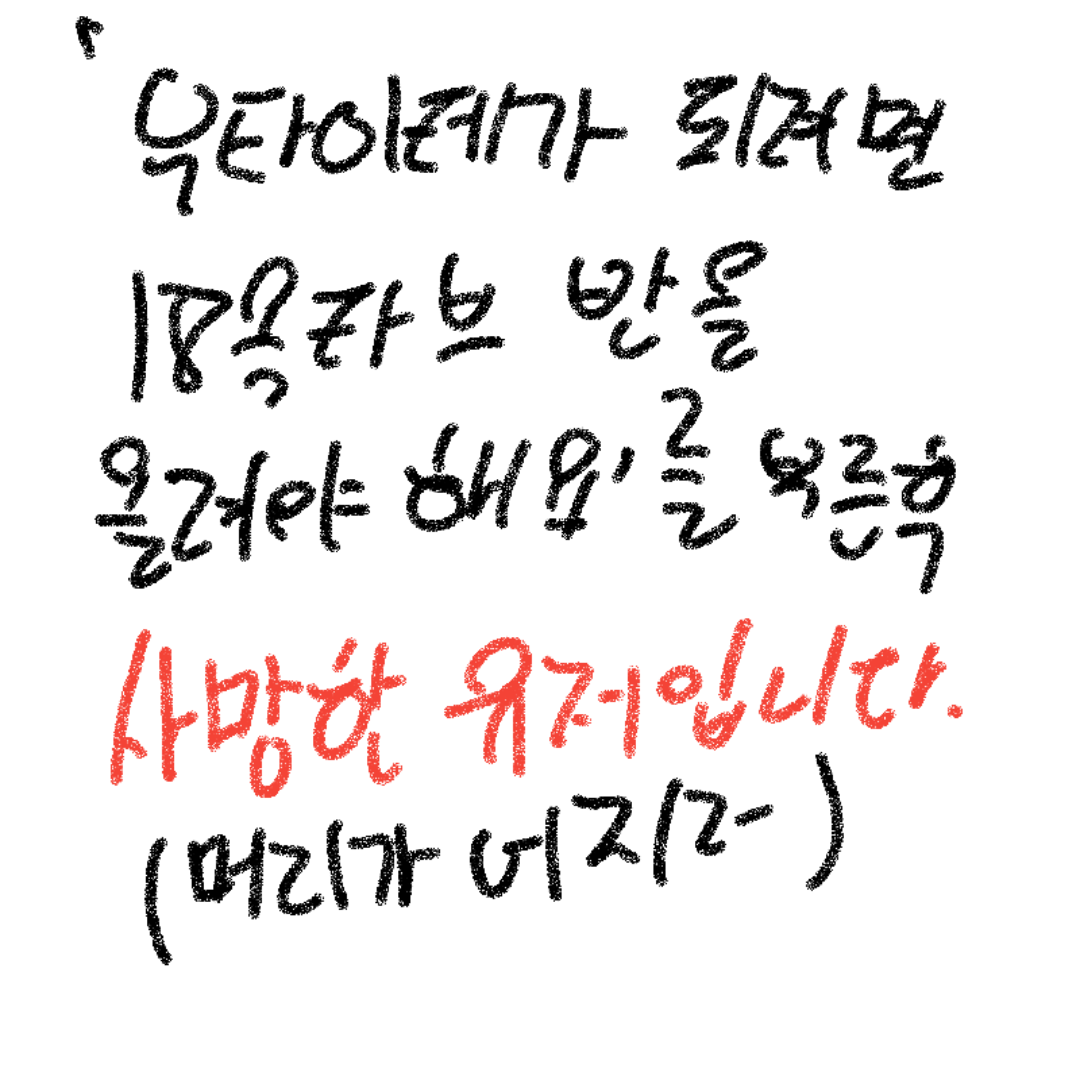 '우타이테가 되려면
18옥타브 반을
올려야 해요'를 부른후
사망한 유저입니다.
(머리가 어지러)